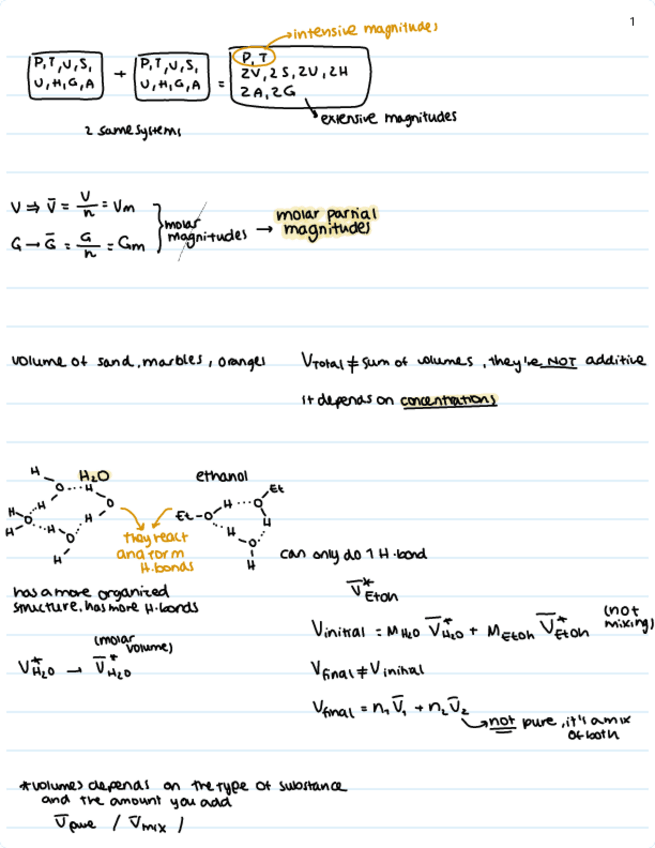 1
intensive magnitudes
P, T, U, S,
U, H, G, A
+
P, T, U, S,
U, H, G, A
=
P, T
2V, 2S, 2U, 2H
2A, 2G
extensive magnitudes
2 same systems
V ⇒ V̄ = V/n = Vm
G → Ḡ = G/n = Gm
molar
magnitudes
→ molar partial
magnitudes
volume of sand, marbles, oranges
VTotal ≠ sum of volumes, they're NOT additive
it depends on concentrations
H₂O
ethanol
H
O
H
H
O
H
H
O
H
H
O
H
Et-O
H
O
Et
H
O
H
H
they react
and form
H-bonds
can only do 1 H-bond
has a more organized
structure, has more H-bonds
V̄*Etoh
Vinitial = MH₂O V̄*H₂O + MEtoh V̄*Etoh (not
mixing)
(molar
volume)
V*H₂O → V̄*H₂O
Vfinal ≠ Vinitial
Vfinal = n₁V̄₁ + n₂V̄₂
not pure, it's a mix
of both
*volumes depends on the type of substance
and the amount you add
V̄pure / V̄mix /